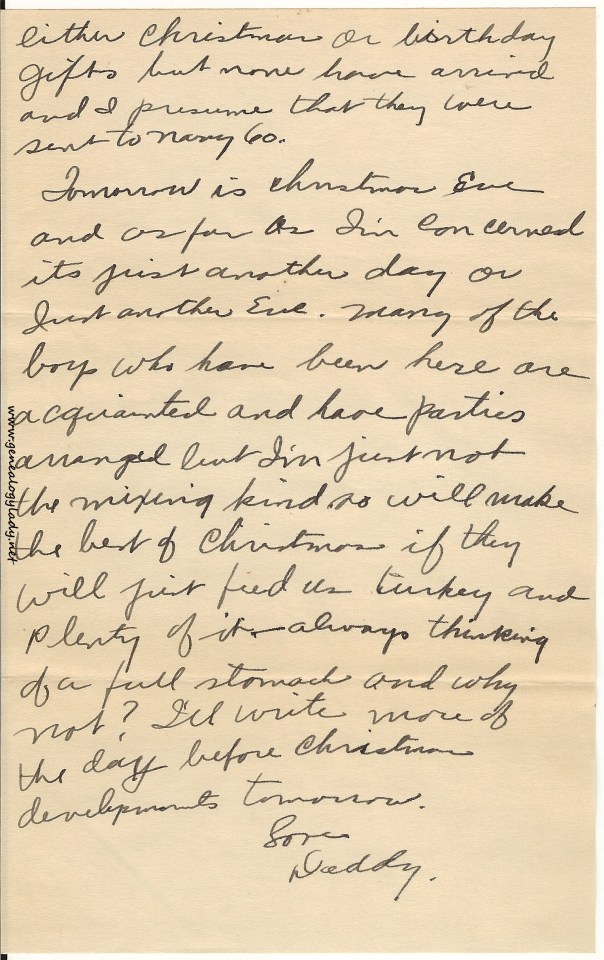 either Christmas or birthday
gifts but none have arrived
and I presume that they were
sent to navy 60.
Tomorrow is christmas Eve
and as far as I'm concerned
its just another day or
Just another Eve. Many of the
boys who have been here are
acquainted and have parties
arranged but I'm just not
the mixing kind so will make
the best of Christmas if they
will just feed us turkey and
plenty of it - always thinking
of a full stomach and why
not? I'll write more of
the day before Christmas
developments tomorrow.
Love
Daddy.
www.genealogylady.net